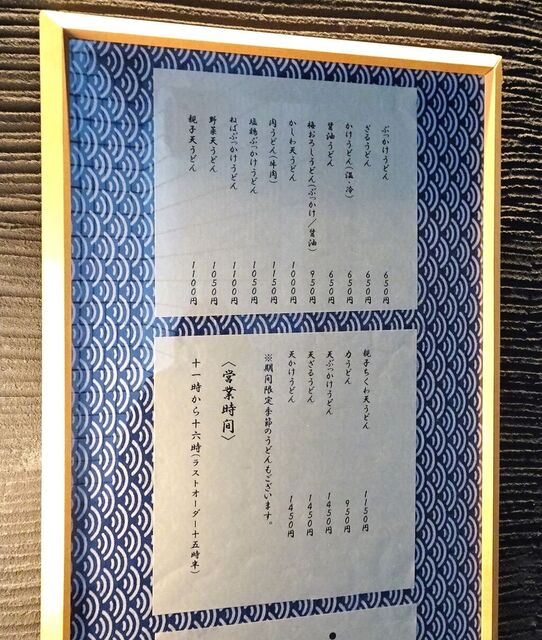 ぶっかけうどん 650円
ざるうどん 650円
かけうどん(温・冷) 650円
醤油うどん 650円
梅おろしうどん(ぶっかけ/醤油) 950円
かしわ天うどん 1000円
肉うどん(牛肉) 1150円
塩鶏ぶっかけうどん 1050円
ねばぶっかけうどん 1100円
野菜天うどん 1050円
親子天うどん 1100円
親子ちくわ天うどん 1150円
力うどん 950円
天ぶっかけうどん 1450円
天ざるうどん 1450円
天かけうどん 1450円
※期間限定季節のうどんもございます。
〈営業時間〉
十一時から十六時(ラストオーダー十五時半)